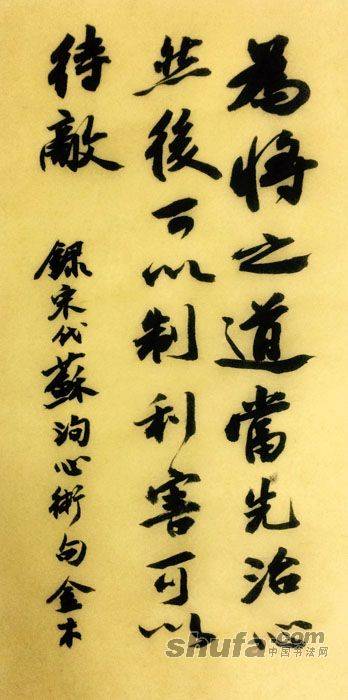 為將之道當先治心
然後可以制利害可以
待敵
録宋代蘇洵心術句金木
shufa.com
中国书法网